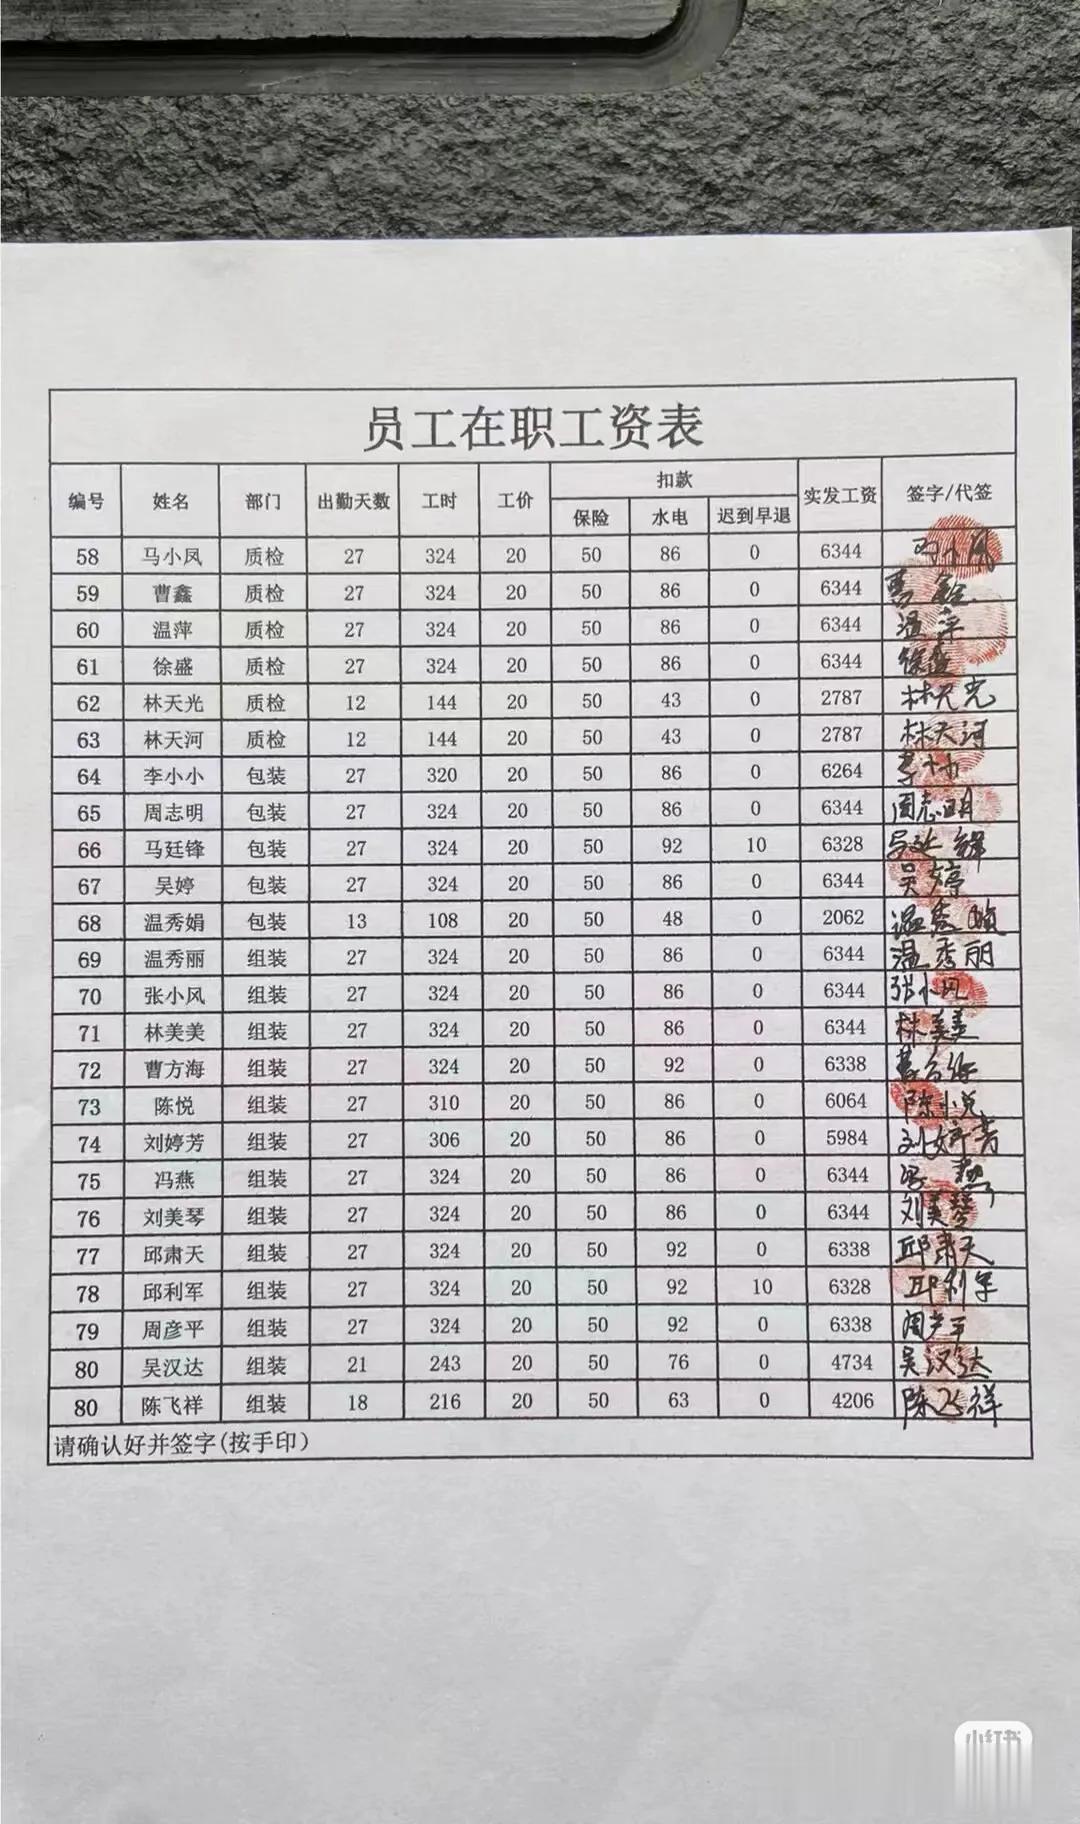 员工在职工资表
编号 姓名 部门 出勤天数 工时 工价 扣款 实发工资 签字/代签
保险 水电 迟到早退
58 马小凤 质检 27 324 20 50 86 0 6344 马小凤
59 曹鑫 质检 27 324 20 50 86 0 6344 曹鑫
60 温萍 质检 27 324 20 50 86 0 6344 温萍
61 徐盛 质检 27 324 20 50 86 0 6344 徐盛
62 林天光 质检 12 144 20 50 43 0 2787 林天光
63 林天河 质检 12 144 20 50 43 0 2787 林天河
64 李小小 包装 27 320 20 50 86 0 6264 李小小
65 周志明 包装 27 324 20 50 86 0 6344 周志明
66 马廷锋 包装 27 324 20 50 92 10 6328 马廷锋
67 吴婷 包装 27 324 20 50 86 0 6344 吴婷
68 温秀娟 包装 13 108 20 50 48 0 2062 温秀娟
69 温秀丽 组装 27 324 20 50 86 0 6344 温秀丽
70 张小风 组装 27 324 20 50 86 0 6344 张小风
71 林美美 组装 27 324 20 50 86 0 6344 林美美
72 曹方海 组装 27 324 20 50 92 0 6338 曹方海
73 陈悦 组装 27 310 20 50 86 0 6064 陈小悦
74 刘婷芳 组装 27 306 20 50 86 0 5984 刘婷芳
75 冯燕 组装 27 324 20 50 86 0 6344 冯燕
76 刘美琴 组装 27 324 20 50 86 0 6344 刘美琴
77 邱肃天 组装 27 324 20 50 92 0 6338 邱肃天
78 邱利军 组装 27 324 20 50 92 10 6328 邱利军
79 周彦平 组装 27 324 20 50 92 0 6338 周彦平
80 吴汉达 组装 21 243 20 50 76 0 4734 吴汉达
80 陈飞祥 组装 18 216 20 50 63 0 4206 陈飞祥
请确认好并签字(按手印）
小红书